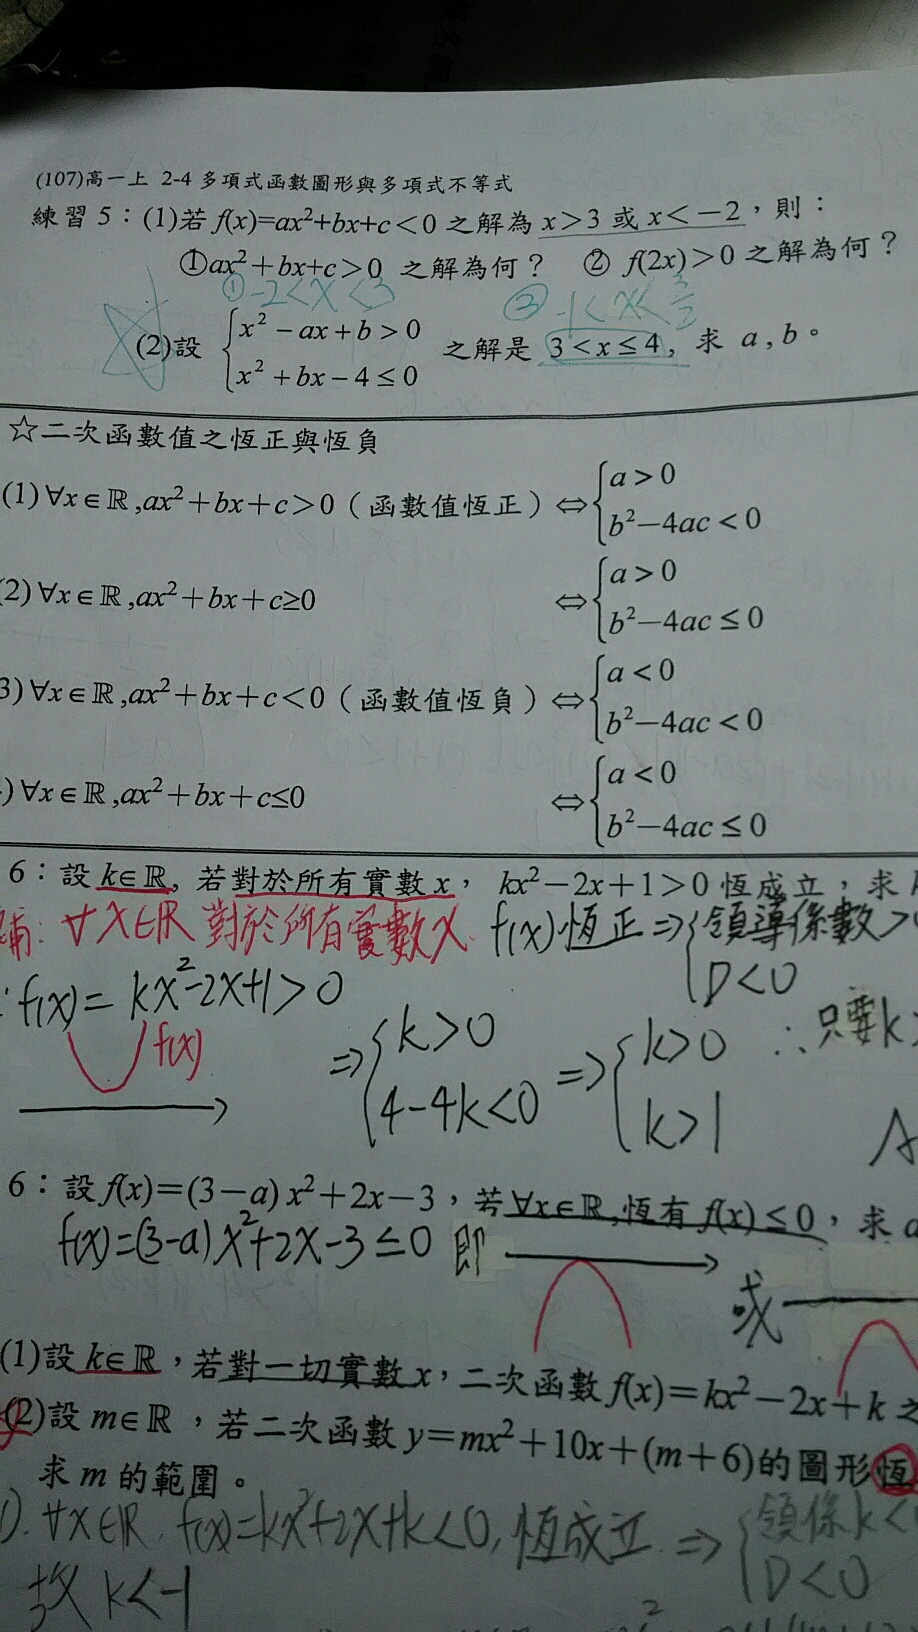 (107)高一上 2-4 多項式函數圖形與多項式不等式
練習 5：(1)若 f(x)=ax²+bx+c＜0 之解為 x＞3 或 x＜－2，則：
①ax²+bx+c＞0 之解為何？ ② f(2x)＞0 之解為何？
①-2<x<3 ② -1<x<3/2
(2)設 { x²－ax+b＞0 之解是 3＜x≤4，求 a , b。
x²+bx－4≤0
☆二次函數值之恆正與恆負
(1) ∀x∈ℝ,ax²+bx+c＞0（函數值恆正）⇔ { a＞0
b²－4ac＜0
2) ∀x∈ℝ,ax²+bx+c≥0 ⇔ { a＞0
b²－4ac≤0
3) ∀x∈ℝ,ax²+bx+c＜0（函數值恆負）⇔ { a＜0
b²－4ac＜0
) ∀x∈ℝ,ax²+bx+c≤0 ⇔ { a＜0
b²－4ac≤0
6：設 k∈ℝ, 若對於所有實數 x， kx²－2x+1＞0 恆成立，求
∀x∈ℝ 對於所有實數x. f(x)恆正⇒{領導係數>0
D<0
f(x)=kx²-2x+1>0
f(x)
⇒{k>0 ⇒{k>0 ∴只要k>
4-4k<0 k>1
6：設 f(x)=(3－a) x²+2x－3，若∀x∈ℝ,恆有 f(x)≤0，求 a
f(x)=(3-a)x²+2x-3≤0 即
或
(1)設 k∈ℝ，若對一切實數 x，二次函數 f(x)=kx²－2x+k 之
(2)設 m∈ℝ，若二次函數 y=mx²+10x+(m+6)的圖形恆
求 m 的範圍。
). ∀x∈ℝ, f(x)=kx²+2x+k<0, 恆成立 ⇒{領係k<
D<0
故 k<-1